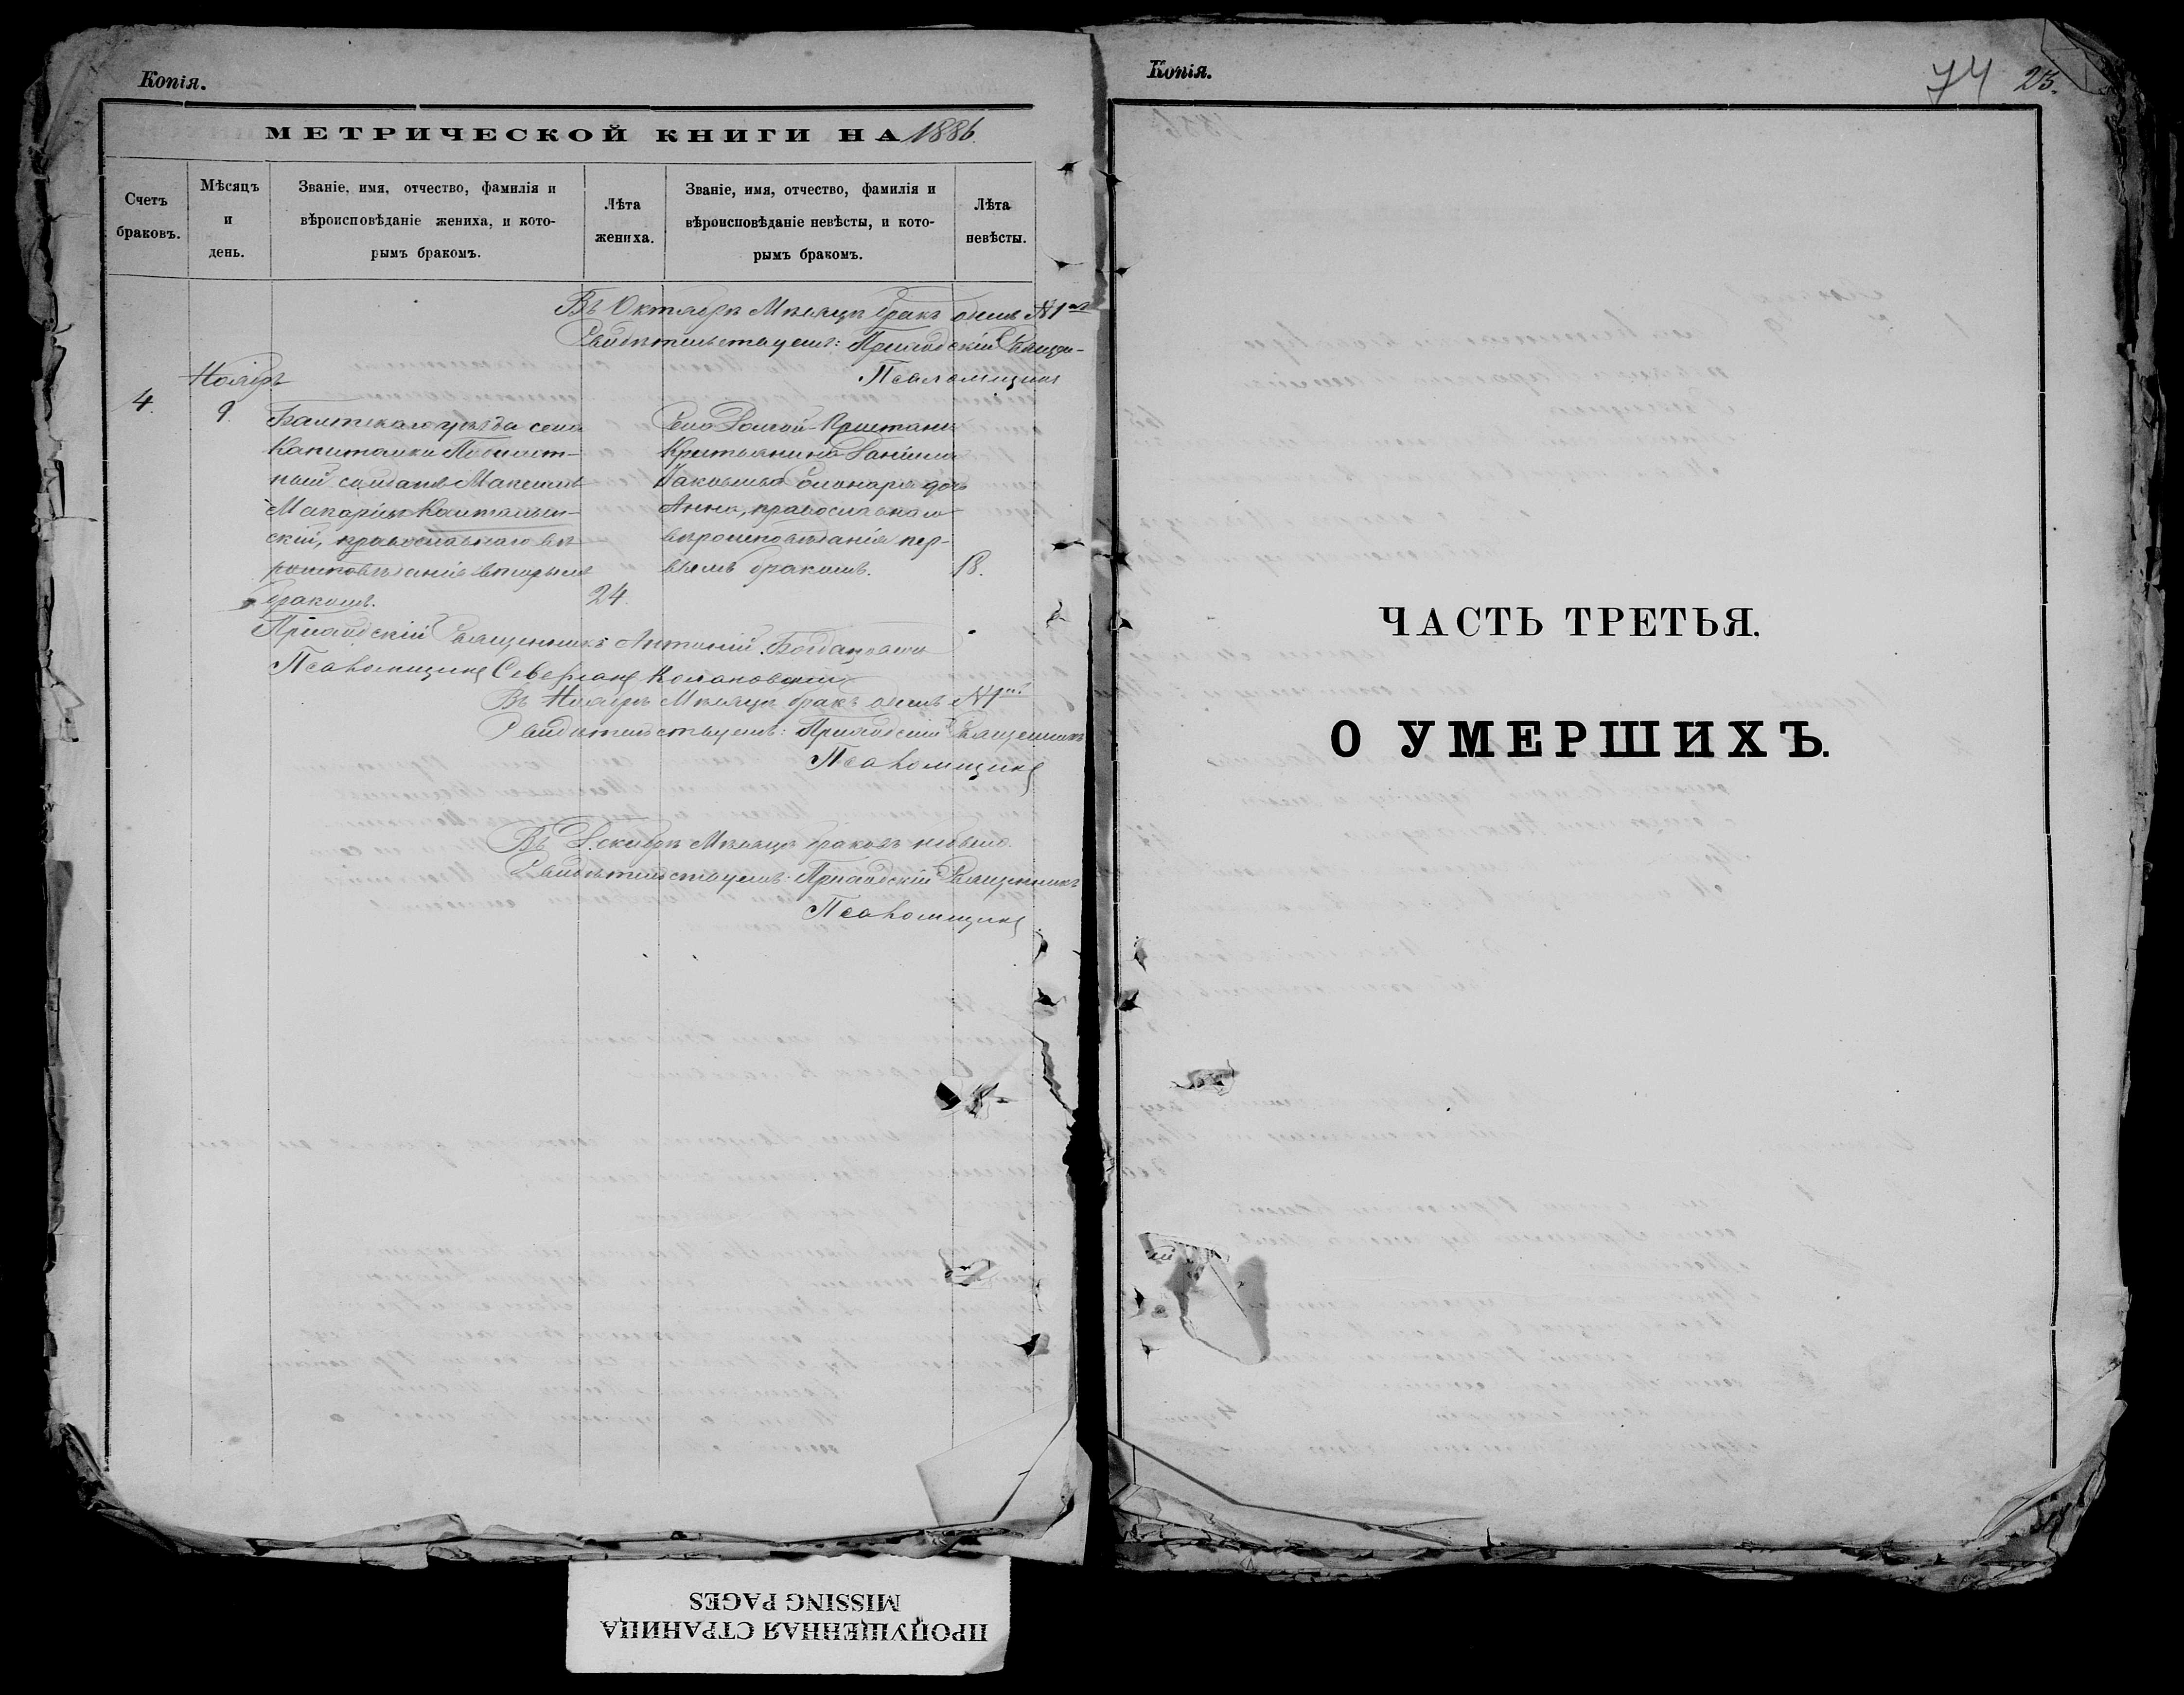 Копія.
МЕТРИЧЕСКОЙ КНИГИ НА 1886.
Счетъ браковъ.
Мѣсяцъ и день.
Званіе, имя, отчество, фамилія и вѣроисповѣданіе жениха, и которымъ бракомъ.
Лѣта жениха.
Званіе, имя, отчество, фамилія и вѣроисповѣданіе невѣсты, и которымъ бракомъ.
Лѣта невѣсты.
Въ Октябрѣ Мѣсяцѣ бракъ одинъ №1
Свидѣтельствуемъ: Приходскій Свяще-
Псаломщикъ
Ноябрь
4. 9.
Балтскаго уѣзда села
Капитанки
ный солдатъ Максимъ
скій, православнаго вѣ-
роисповѣданія вторымъ
бракомъ.
24.
Села Долгой-Пристани
Крестьянина Даніила
Іаковлева дочь
Анна, православнаго
вѣроисповѣданія пер-
вымъ бракомъ.
18.
Приходскій Священникъ Антоній
Псаломщикъ
Въ Ноябрѣ Мѣсяцѣ бракъ одинъ №1
Свидѣтельствуемъ: Приходскій Священникъ
Псаломщикъ
Въ Декабрѣ Мѣсяцѣ браковъ небыло.
Свидѣтельствуемъ: Приходскій Священникъ
Псаломщикъ
ПРОПУЩЕННАЯ СТРАНИЦА
MISSING PAGES
Копія.
74 23.
ЧАСТЬ ТРЕТЬЯ.
О УМЕРШИХЪ.